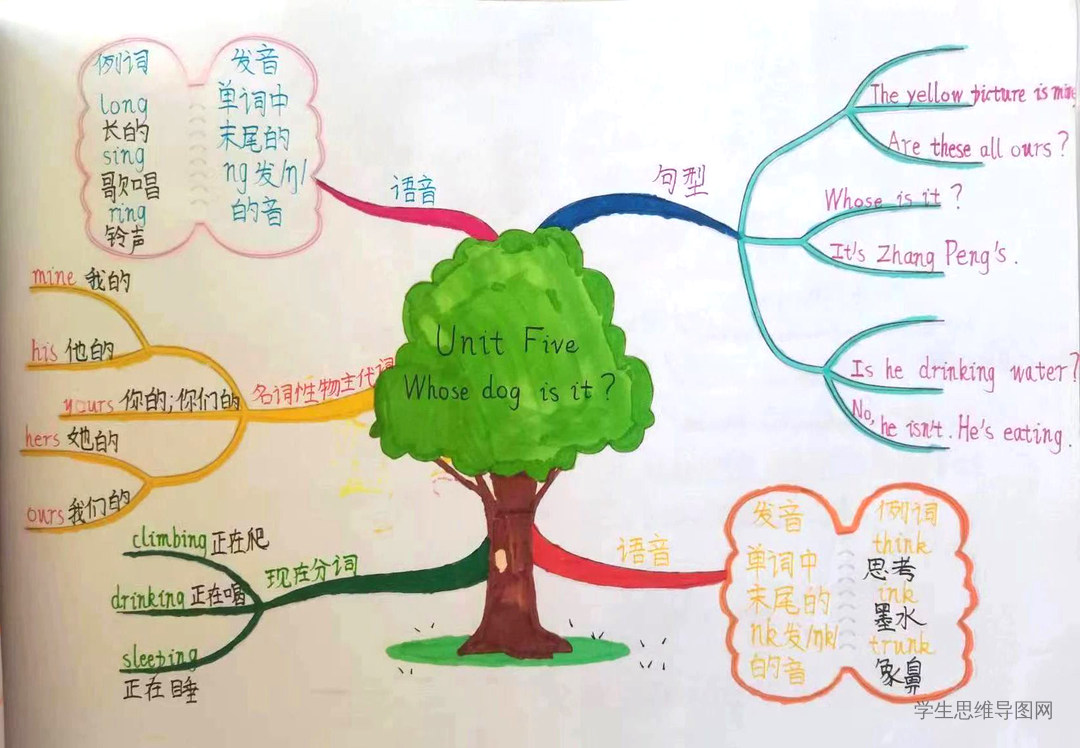 Unit Five
Whose dog is it?
语音
例词
long
长的
sing
歌唱
ring
铃声
发音
单词中
末尾的
ng发/η/
的音
句型
The yellow picture is mine
Are these all ours?
Whose is it?
It's Zhang Peng's.
Is he drinking water?
No, he isn't. He's eating.
名词性物主代词
mine 我的
his 他的
yours 你的;你们的
hers 她的
ours 我们的
现在分词
climbing 正在爬
drinking 正在喝
sleeping
正在睡
语音
发音
单词中
末尾的
nk发/ηk/
的音
例词
think
思考
ink
墨水
trunk
象鼻
学生思维导图网